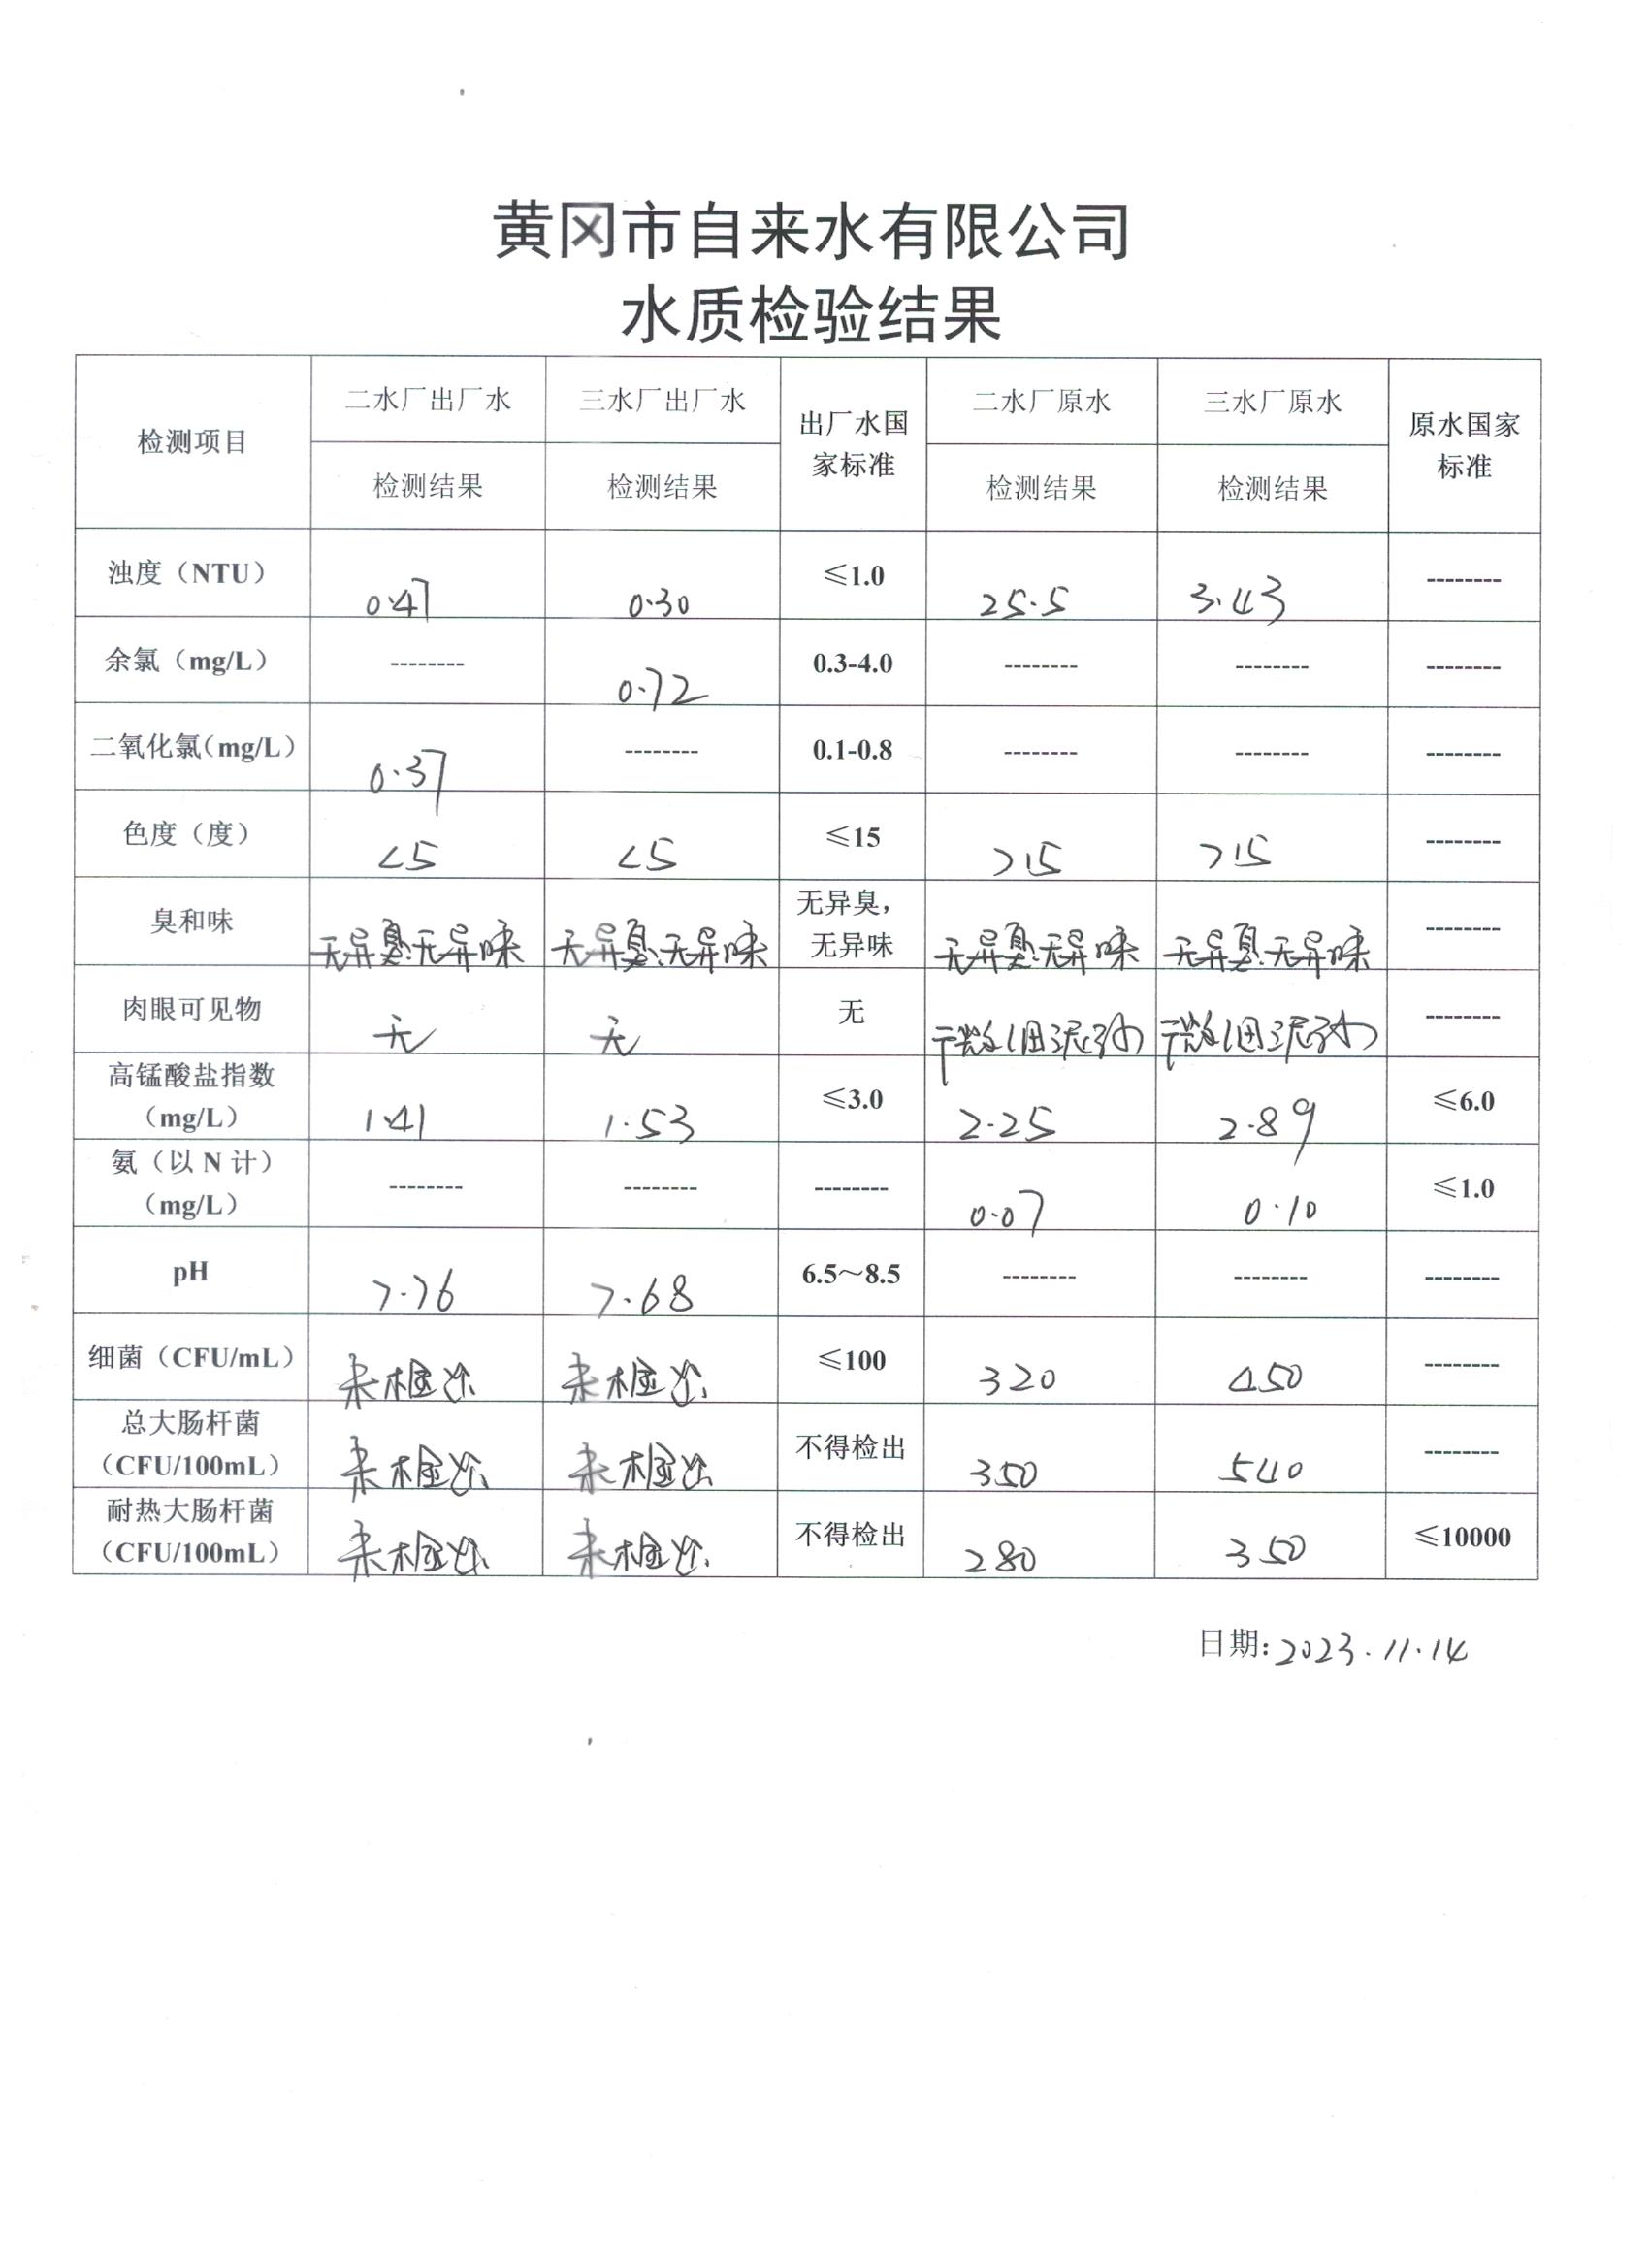 黄冈市自来水有限公司
水质检验结果
检测项目 二水厂出厂水 三水厂出厂水 出厂水国家标准 二水厂原水 三水厂原水 原水国家标准
检测结果 检测结果 检测结果 检测结果
浊度（NTU） 0.47 0.30 ≤1.0 25.5 3.43 --------
余氯（mg/L） -------- 0.72 0.3-4.0 -------- -------- --------
二氧化氯（mg/L） 0.37 -------- 0.1-0.8 -------- -------- --------
色度（度） <5 <5 ≤15 >15 >15 --------
臭和味 无异臭.无异味 无异臭.无异味 无异臭，无异味 无异臭.无异味 无异臭.无异味 --------
肉眼可见物 无 无 无 微细泥沙 微细泥沙 --------
高锰酸盐指数（mg/L） 1.41 1.53 ≤3.0 2.25 2.89 ≤6.0
氨（以 N 计）（mg/L） -------- -------- -------- 0.07 0.10 ≤1.0
pH 7.76 7.68 6.5～8.5 -------- -------- --------
细菌（CFU/mL） 未检出 未检出 ≤100 320 450 --------
总大肠杆菌（CFU/100mL） 未检出 未检出 不得检出 350 540 --------
耐热大肠杆菌（CFU/100mL） 未检出 未检出 不得检出 280 350 ≤10000
日期：2023.11.14